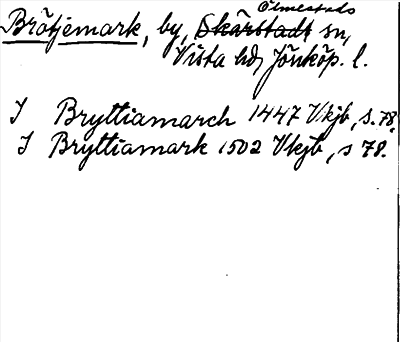 Ölmestads
Brötjemark, by, Skärstads sn,
Vista hd, Jönköp. l.
I Bryttiamarch 1447 Vkjb, s. 78.
I Bryttiamark 1502 Vkjb, s 78.